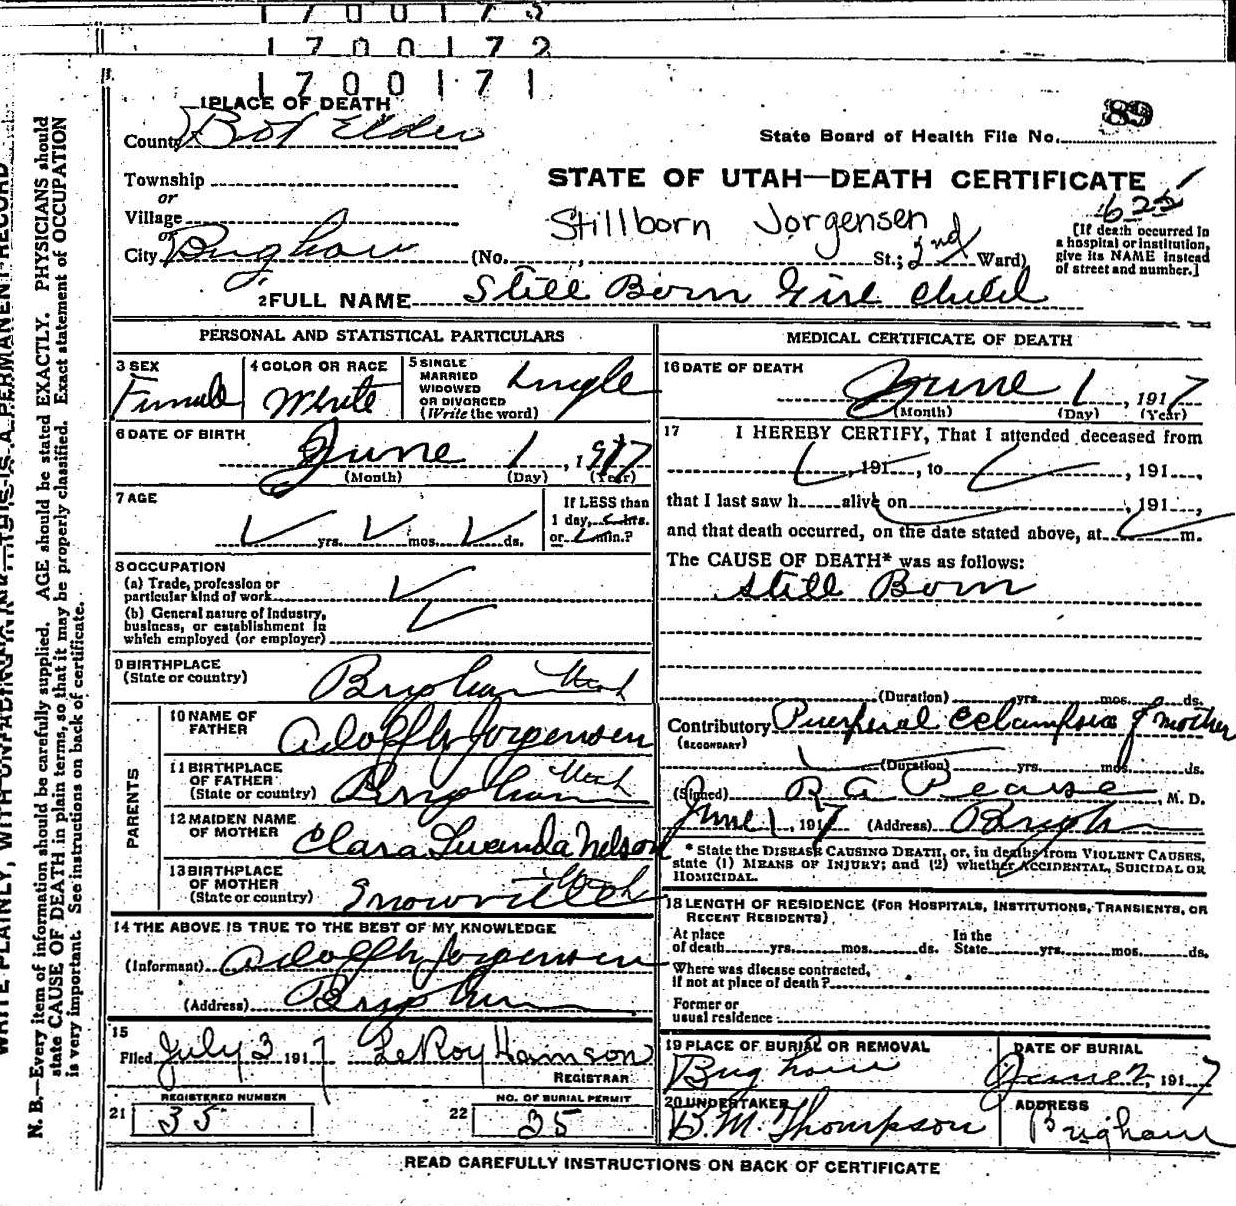 1700172
1700171
1 PLACE OF DEATH
89
County Box Elder
State Board of Health File No.
Township
or
STATE OF UTAH—DEATH CERTIFICATE
Village
or
Stillborn Jorgensen
625
City Brigham (No. , St.; 2nd Ward)
[If death occurred in
a hospital or institution,
give its NAME instead
of street and number.]
2 FULL NAME Still Born Girl Child
PERSONAL AND STATISTICAL PARTICULARS
3 SEX
Female
4 COLOR OR RACE
White
5 SINGLE
MARRIED
WIDOWED
OR DIVORCED
(Write the word)
Single
6 DATE OF BIRTH
June 1, 1917
(Month) (Day) (Year)
7 AGE
yrs. mos. ds.
If LESS than
1 day, hrs.
or min.?
8 OCCUPATION
(a) Trade, profession or
particular kind of work
(b) General nature of industry,
business, or establishment in
which employed (or employer)
9 BIRTHPLACE
(State or country)
Brigham Utah
PARENTS
10 NAME OF
FATHER
Adolph Jorgensen
11 BIRTHPLACE
OF FATHER
(State or country)
Brigham Utah
12 MAIDEN NAME
OF MOTHER
Clara Nelson
13 BIRTHPLACE
OF MOTHER
(State or country)
Snowville Utah
14 THE ABOVE IS TRUE TO THE BEST OF MY KNOWLEDGE
(Informant) Adolph Jorgensen
(Address) Brigham
15
Filed July 3 1917 LeRoy Hamson
REGISTRAR
REGISTERED NUMBER
21 35
NO. OF BURIAL PERMIT
22 35
MEDICAL CERTIFICATE OF DEATH
16 DATE OF DEATH
June 1, 1917
(Month) (Day) (Year)
17 I HEREBY CERTIFY, That I attended deceased from
, 191 , to , 191 ,
that I last saw h alive on , 191 ,
and that death occurred, on the date stated above, at m.
The CAUSE OF DEATH* was as follows:
Still Born
(Duration) yrs. mos. ds.
Contributory Puerperal Eclampsia of mother
(SECONDARY)
(Duration) yrs. mos. ds.
(Signed) R A Pearse, M. D.
June 1, 1917 (Address) Brigham
* State the DISEASE CAUSING DEATH, or, in deaths from VIOLENT CAUSES,
state (1) MEANS OF INJURY; and (2) whether ACCIDENTAL, SUICIDAL OR
HOMICIDAL.
18 LENGTH OF RESIDENCE (FOR HOSPITALS, INSTITUTIONS, TRANSIENTS, OR
RECENT RESIDENTS)
At place
of death yrs. mos. ds.
In the
State yrs. mos. ds.
Where was disease contracted,
if not at place of death?
Former or
usual residence
19 PLACE OF BURIAL OR REMOVAL
Brigham
DATE OF BURIAL
June 2, 1917
20 UNDERTAKER
B.M. Thompson
ADDRESS
Brigham
READ CAREFULLY INSTRUCTIONS ON BACK OF CERTIFICATE
N. B.—Every item of information should be carefully supplied. AGE should be stated EXACTLY. PHYSICIANS should
state CAUSE OF DEATH in plain terms, so that it may be properly classified. Exact statement of OCCUPATION
is very important. See instructions on back of certificate.